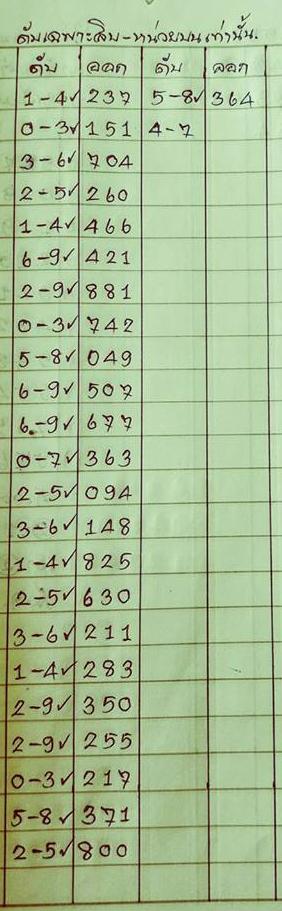 ดับเฉพาะสิบ-หน่วยบนเท่านั้น.
ดับ ออก ดับ ออก
1-4✓ 237 5-8✓ 364
0-3✓ 151 4-7
3-6✓ 704
2-5✓ 260
1-4✓ 466
6-9✓ 421
2-9✓ 881
0-3✓ 742
5-8✓ 049
6-9✓ 507
6-9✓ 677
0-7✓ 363
2-5✓ 094
3-6✓ 148
1-4✓ 825
2-5✓ 630
3-6✓ 211
1-4✓ 283
2-9✓ 350
2-9✓ 255
0-3✓ 217
5-8✓ 371
2-5✓ 800